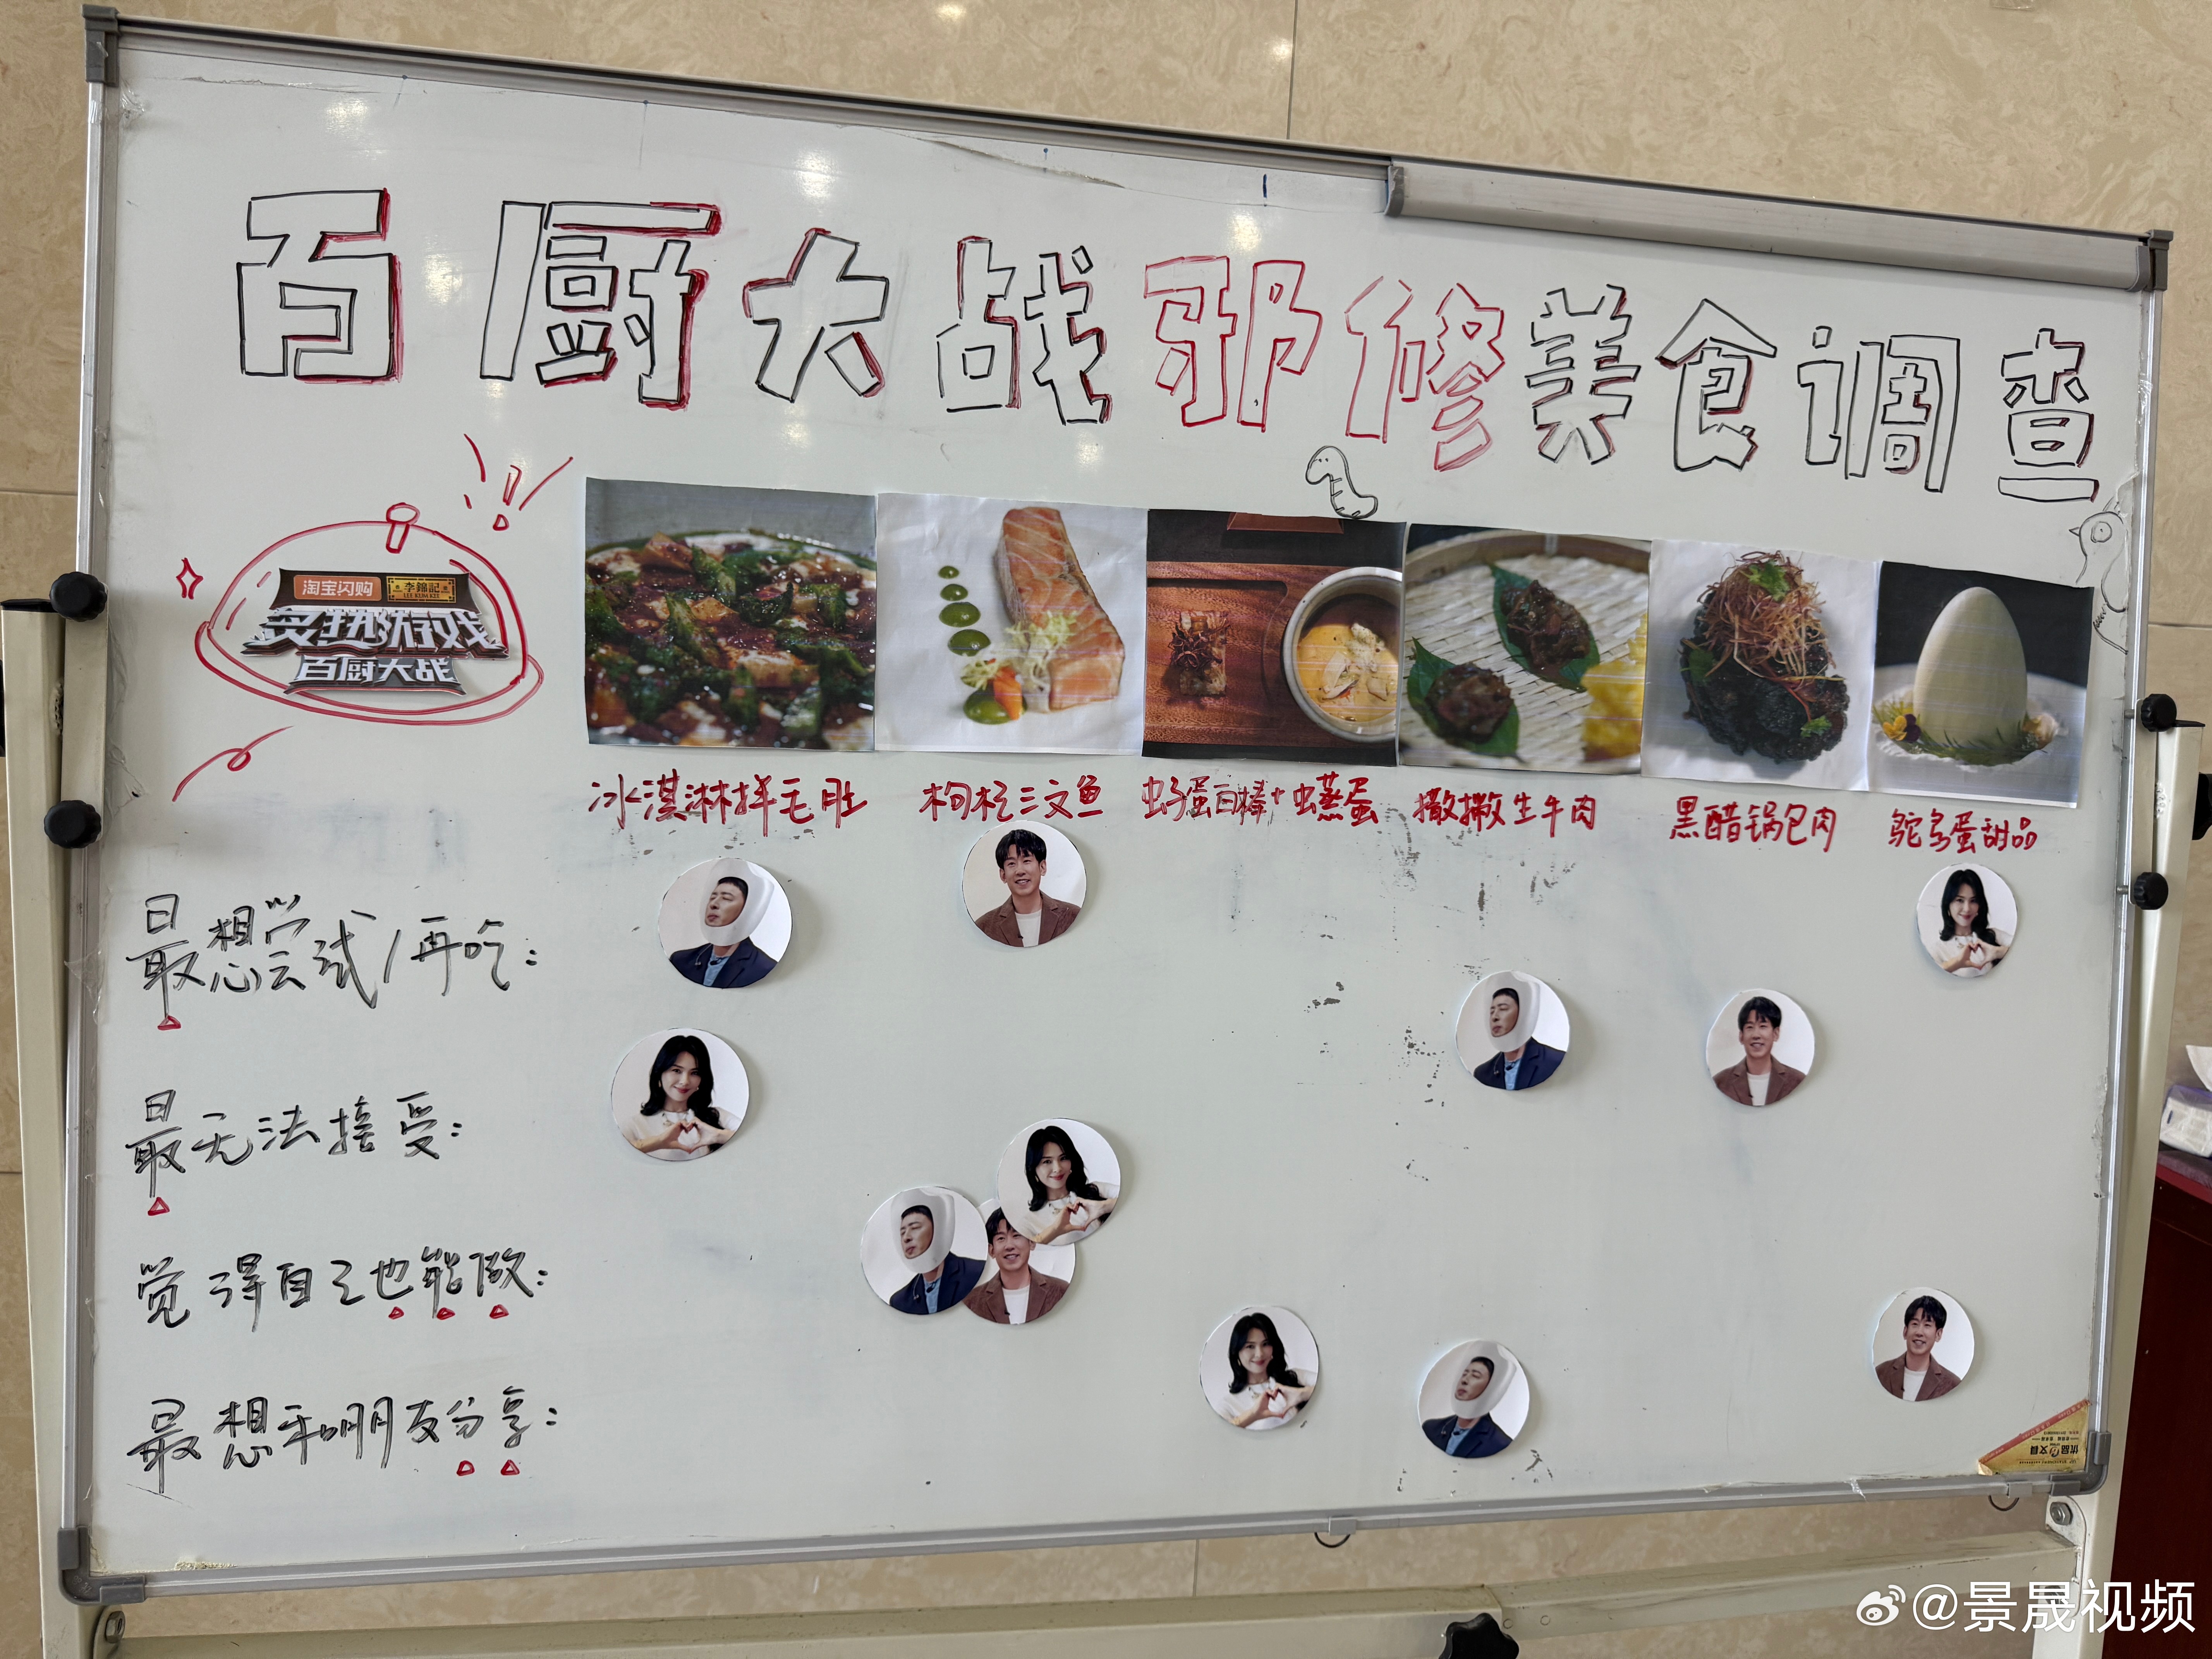 百厨大战邪修美食调查
淘宝闪购 李錦記
LEE KUM KEE
炙热游戏
百厨大战
冰淇淋拌毛肚 枸杞三文鱼 虫子蛋白棒+虫蒸蛋 撒撇生牛肉 黑醋锅包肉 鸵鸟蛋甜品
最想尝试/再吃:
最无法接受:
觉得自己也能做:
最想和朋友分享:
优品文具
@景晟视频